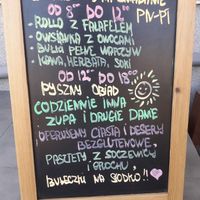 OD 8⁰⁰ DO 12⁰⁰ PN-PT
- ROLLO Z FALAFELEM
- OWSIANKA Z OWOCAMI
- BUŁKI PEŁNE WARZYW
- KAWA, HERBATA, SOKI
OD 12⁰⁰ DO 18⁰⁰
PYSZNY OBIAD
CODZIENNIE INNA
ZUPA I DRUGIE DANIE
OFERUJEMY CIASTA I DESERY
BEZGLUTENOWE,
PASZTETY Z SOCZEWICY
I GROCHU,
BUŁECZKI NA SŁODKO!!